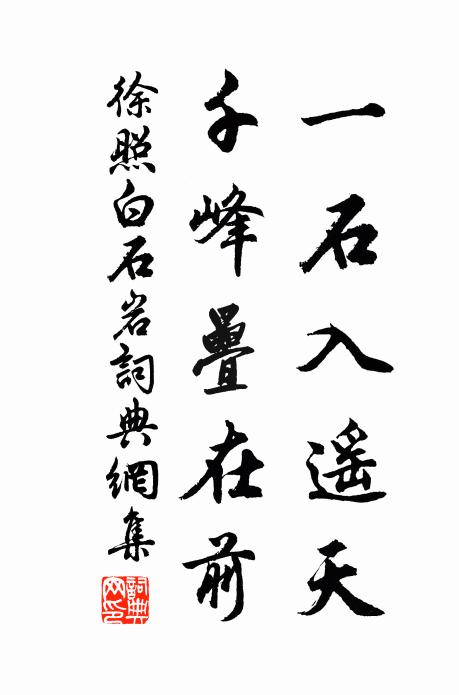 一石入遥天
千峰疊在前
徐照白石岩詞典網集
詞典網印